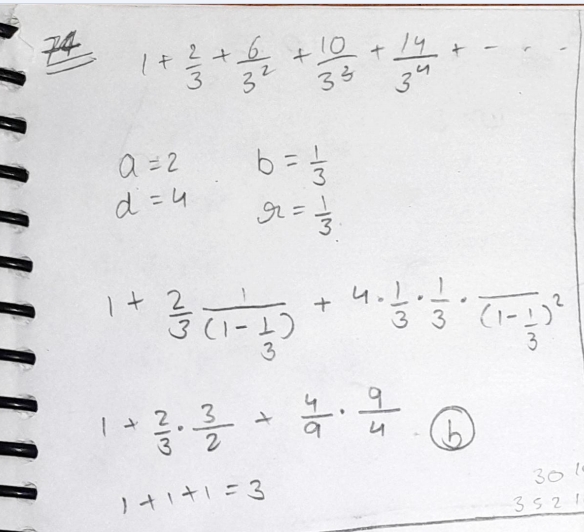 74 1 + 2/3 + 6/3² + 10/3³ + 14/3⁴ + - - -
a = 2 b = 1/3
d = 4 r = 1/3
1 + 2/3 1/(1 - 1/3) + 4 · 1/3 · 1/3 · /(1 - 1/3)²
1 + 2/3 · 3/2 + 4/9 · 9/4 b
1 + 1 + 1 = 3
30
3521